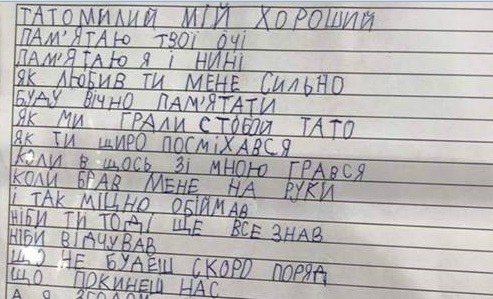 ТАТОМИЛИЙ МІЙ ХОРОШИЙ
ПАМ'ЯТАЮ ТВОЇ ОЧІ
ПАМ'ЯТАЮ Я І НИНІ
ЯК ЛЮБИВ ТИ МЕНЕ СИЛЬНО
БУДУ ВІЧНО ПАМ'ЯТАТИ
ЯК МИ ГРАЛИ СТОБОЙ ТАТО
ЯК ТИ ЩИРО ПОСМІХАВСЯ
КОЛИ В ЩОСЬ ЗІ МНОЮ ГРАВСЯ
КОЛИ БРАВ МЕНЕ НА РУКИ
І ТАК МІЦНО ОБІЙМАВ
НІБИ ТИ ТОДІ ЩЕ ВСЕ ЗНАВ
НІБИ ВІДЧУВАВ
ЩО НЕ БУДЕШ СКОРО ПОРЯД
ЩО ПОКИНЕШ НАС
А Я ЗГОДОМ